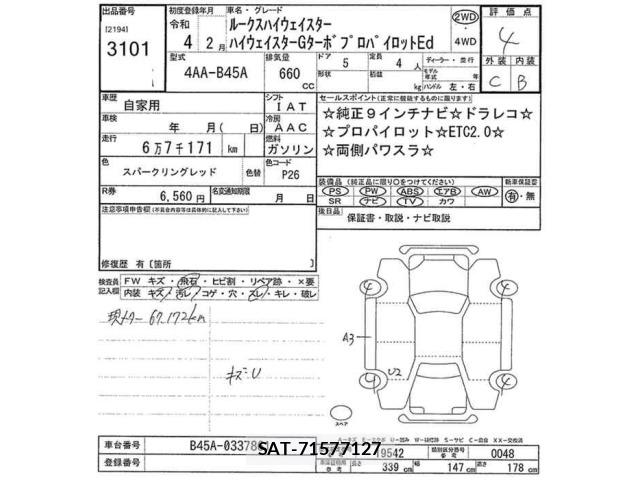 出品番号
[2194]
3101
初度登録年月
令和
4 2月
車名・グレード
ルークスハイウェイスター
ハイウェイスターGターボプロパイロットEd
2WD
4WD
評価点
4
外装 内装
C B
型式
4AA-B45A
排気量
660 CC
ドア 5
形状
定員 4 人
積載 kg
ディーラー・並行
モデル年式 年
ハンドル 左・右
車歴
自家用
シフト
IAT
車検
年 月(日)
冷房
AAC
走行
6万7千171 km
燃料
ガソリン
色
スパークリングレッド
色替
色コード
P26
R券
6,560 円
名変通知期限
月 日
セールスポイント(正常に機能するものに限ります)
☆純正9インチナビ☆ドラレコ☆
☆プロパイロット☆ETC2.0☆
☆両側パワスラ☆
装備品(純正品に限り○をつけてください)
PS PW ABS エアB AW
SR ナビ TV カワ
新車保証書
有・無
後日品
保証書・取説・ナビ取説
注意事項申告欄(不具合内容等は具体的に記入して下さい)
修復歴 有〔箇所
検査員記入欄
FW キズ・飛石・ヒビ割・リペア跡・×要
内装 キズ・汚レ・コゲ・穴・スレ・キレ・破レ
現メター 67.172km
キズ・U
4
4
A3
U2
4
4
スペア
車台番号
B45A-03378
SAT-71577127
登録番号
19542
類別区分番号
0048
長さ 339 cm 幅 147 cm 高さ 178 cm